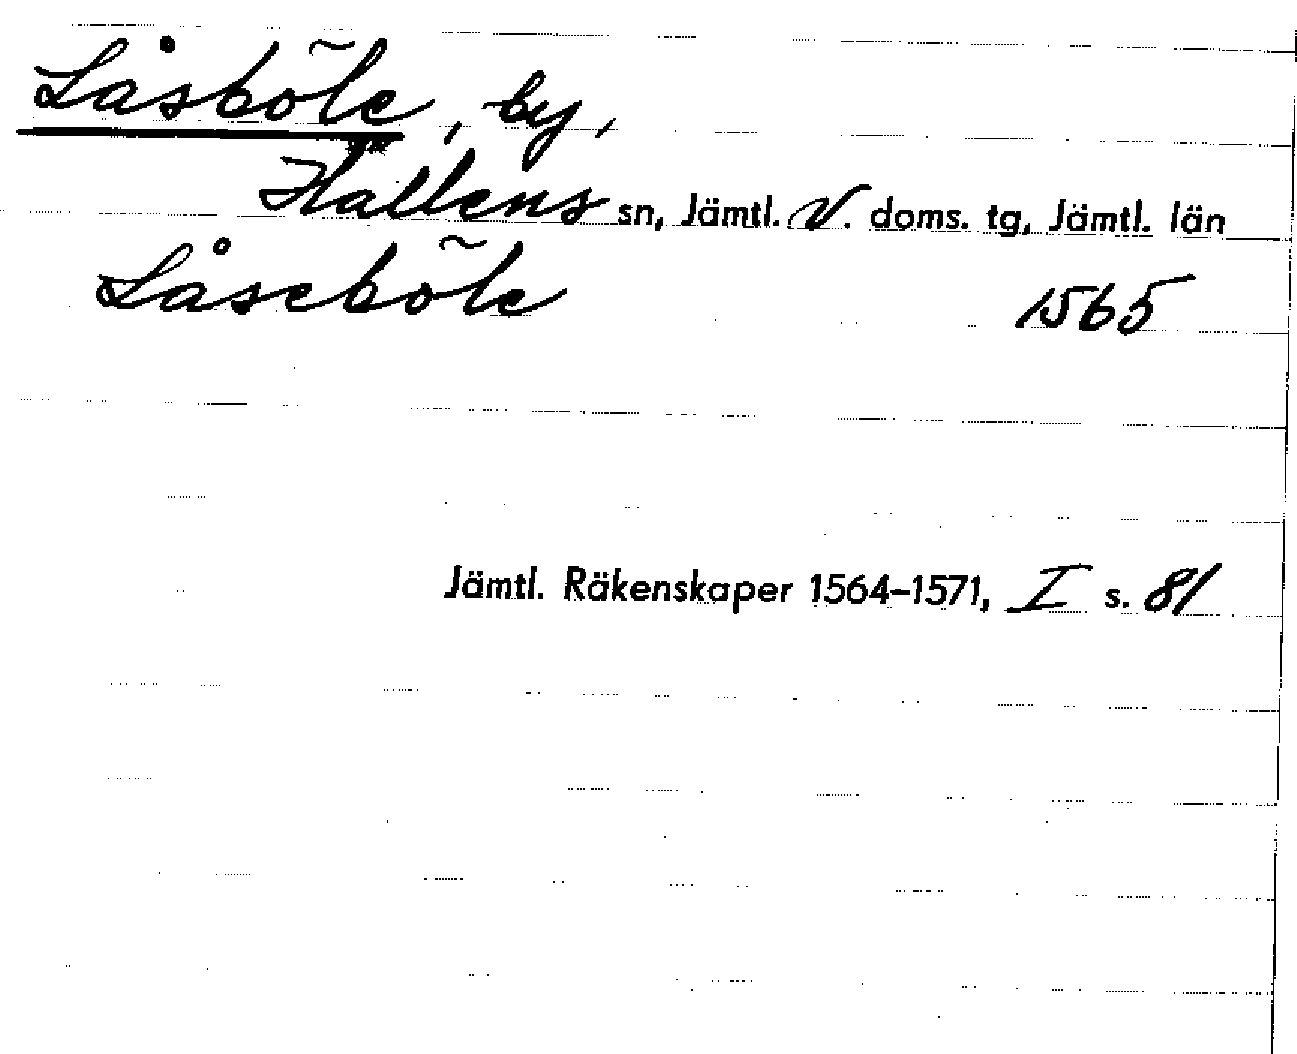 Låsböle, by,
Hallens sn, Jämtl. V. doms. tg, Jämtl. län
Låseböle 1565
Jämtl. Räkenskaper 1564–1571, I s. 81